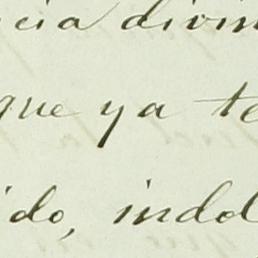 cia divin
que ya te
ido, indol